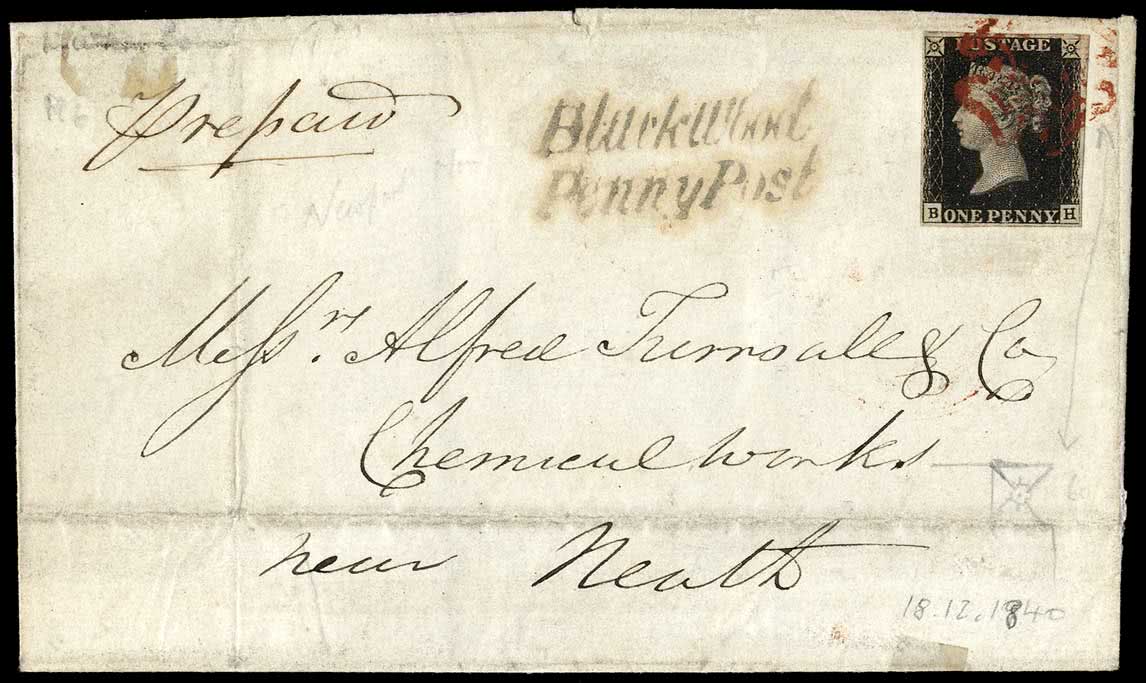 Prepaid
BlackWood
Penny Post
POSTAGE
B ONE PENNY H
Newport
Messrs. Alfred Turnsall & Co
Chemical Works
near Neath
18.12.1840